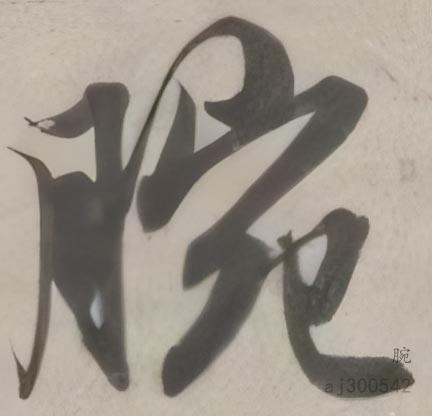 腕
腕
aj300542